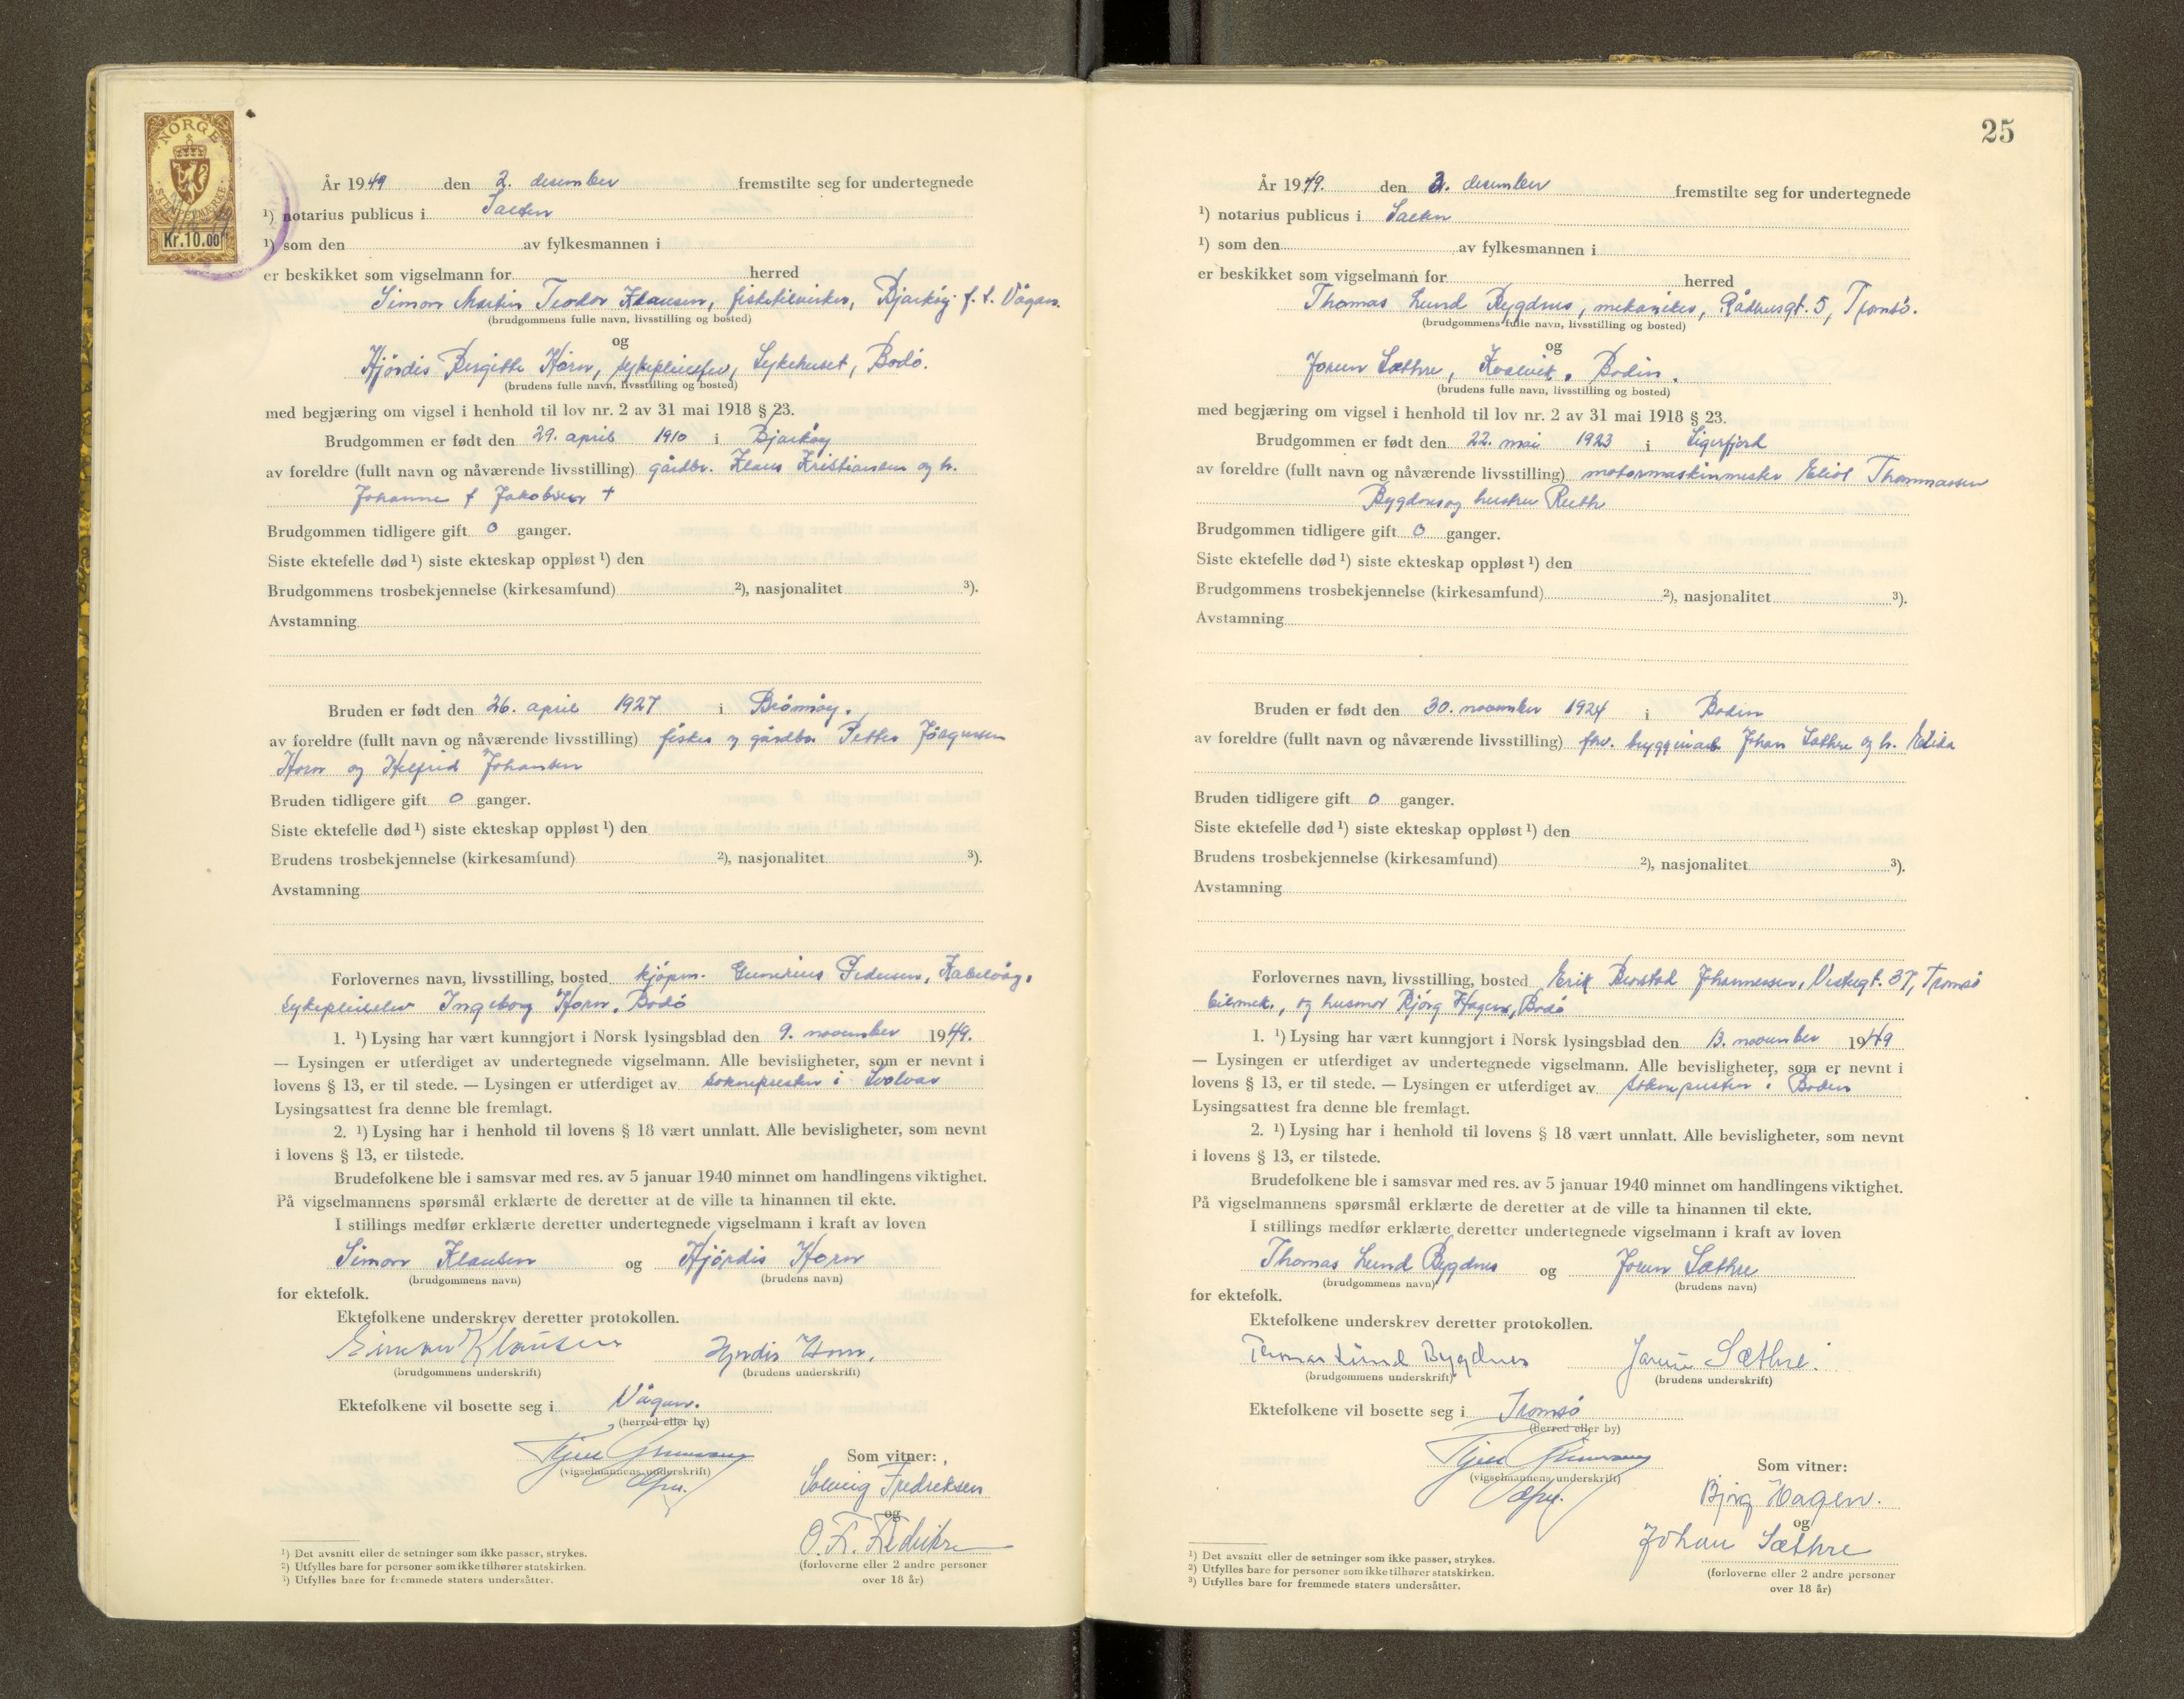 NORGE
STEMPELMERKE
Kr.10.00
År 1949 den 2. desember fremstilte seg for undertegnede
¹) notarius publicus i Salten
¹) som den av fylkesmannen i
er beskikket som vigselmann for herred
Simon Martin Teodor Klausen, fisketilvirker, Bjarköy f. t. Vågan.
(brudgommens fulle navn, livsstilling og bosted)
og
Hjördis Birgitte Horn, sykepleieelev, Sykehuset, Bodö.
(brudens fulle navn, livsstilling og bosted)
med begjæring om vigsel i henhold til lov nr. 2 av 31 mai 1918 § 23.
Brudgommen er født den 29. april 1910 i Bjarköy
av foreldre (fullt navn og nåværende livsstilling) gårdbr. Klaus Kristiansen og h.
Johanne f Jakobsen +
Brudgommen tidligere gift 0 ganger.
Siste ektefelle død ¹) siste ekteskap oppløst ¹) den
Brudgommens trosbekjennelse (kirkesamfund) ²), nasjonalitet ³).
Avstamning
Bruden er født den 26. april 1927 i Brönnöy.
av foreldre (fullt navn og nåværende livsstilling) fisker og gårdbr Petter Jörgensen
Horn og Helfrid Johansen
Bruden tidligere gift 0 ganger.
Siste ektefelle død ¹) siste ekteskap oppløst ¹) den
Brudens trosbekjennelse (kirkesamfund) ²), nasjonalitet ³).
Avstamning
Forlovernes navn, livsstilling, bosted kjöpm. Gunerius Pedersen, Kabelvåg,
sykepleieelev Ingeborg Horn, Bodö
1. ¹) Lysing har vært kunngjort i Norsk lysingsblad den 9. november 1949.
— Lysingen er utferdiget av undertegnede vigselmann. Alle bevisligheter, som er nevnt i
lovens § 13, er til stede. — Lysingen er utferdiget av soknepresten i Svolvær
Lysingsattest fra denne ble fremlagt.
2. ¹) Lysing har i henhold til lovens § 18 vært unnlatt. Alle bevisligheter, som nevnt
i lovens § 13, er tilstede.
Brudefolkene ble i samsvar med res. av 5 januar 1940 minnet om handlingens viktighet.
På vigselmannens spørsmål erklærte de deretter at de ville ta hinannen til ekte.
I stillings medfør erklærte deretter undertegnede vigselmann i kraft av loven
Simon Klausen og Hjördis Horn
(brudgommens navn) (brudens navn)
for ektefolk.
Ektefolkene underskrev deretter protokollen.
Simon Klausen Hjördis Horn.
(brudgommens underskrift) (brudens underskrift)
Ektefolkene vil bosette seg i Vågan.
(herred eller by)
Som vitner:
(vigselmannens underskrift)
Solveig Fredriksen
og
(forloverne eller 2 andre personer
over 18 år)
¹) Det avsnitt eller de setninger som ikke passer, strykes.
²) Utfylles bare for personer som ikke tilhører statskirken.
³) Utfylles bare for fremmede staters undersåtter.
25
År 1949. den 3. desember fremstilte seg for undertegnede
¹) notarius publicus i Salten
¹) som den av fylkesmannen i
er beskikket som vigselmann for herred
Thomas Lund Bygdnes, mekaniker, Rådhusgt. 5, Tromsö.
(brudgommens fulle navn, livsstilling og bosted)
og
Jorun Sæthre, Kvalvik, Bodin.
(brudens fulle navn, livsstilling og bosted)
med begjæring om vigsel i henhold til lov nr. 2 av 31 mai 1918 § 23.
Brudgommen er født den 22. mai 1923 i Sigerfjord
av foreldre (fullt navn og nåværende livsstilling) motormaskinmester Eliot Thommassen
Bygdnes og hustru Ruth
Brudgommen tidligere gift 0 ganger.
Siste ektefelle død ¹) siste ekteskap oppløst ¹) den
Brudgommens trosbekjennelse (kirkesamfund) ²), nasjonalitet ³).
Avstamning
Bruden er født den 30. november 1924 i Bodin
av foreldre (fullt navn og nåværende livsstilling) fhv. bryggeriarb Johan Sæthre og h. Elida
Bruden tidligere gift 0 ganger.
Siste ektefelle død ¹) siste ekteskap oppløst ¹) den
Brudens trosbekjennelse (kirkesamfund) ²), nasjonalitet ³).
Avstamning
Forlovernes navn, livsstilling, bosted Erik Johannessen, Vestregt. 37, Tromsö
bilmek., og husmor Björg Hagen, Bodö
1. ¹) Lysing har vært kunngjort i Norsk lysingsblad den 13. november 1949
— Lysingen er utferdiget av undertegnede vigselmann. Alle bevisligheter, som er nevnt i
lovens § 13, er til stede. — Lysingen er utferdiget av soknepresten i Bodin
Lysingsattest fra denne ble fremlagt.
2. ¹) Lysing har i henhold til lovens § 18 vært unnlatt. Alle bevisligheter, som nevnt
i lovens § 13, er tilstede.
Brudefolkene ble i samsvar med res. av 5 januar 1940 minnet om handlingens viktighet.
På vigselmannens spørsmål erklærte de deretter at de ville ta hinannen til ekte.
I stillings medfør erklærte deretter undertegnede vigselmann i kraft av loven
Thomas Lund Bygdnes og Jorun Sæthre
(brudgommens navn) (brudens navn)
for ektefolk.
Ektefolkene underskrev deretter protokollen.
Thomas Lund Bygdnes Jorun Sæthre.
(brudgommens underskrift) (brudens underskrift)
Ektefolkene vil bosette seg i Tromsö
(herred eller by)
Som vitner:
(vigselmannens underskrift)
Björg Hagen.
og
Johan Sæthre
(forloverne eller 2 andre personer
over 18 år)
¹) Det avsnitt eller de setninger som ikke passer, strykes.
²) Utfylles bare for personer som ikke tilhører statskirken.
³) Utfylles bare for fremmede staters undersåtter.